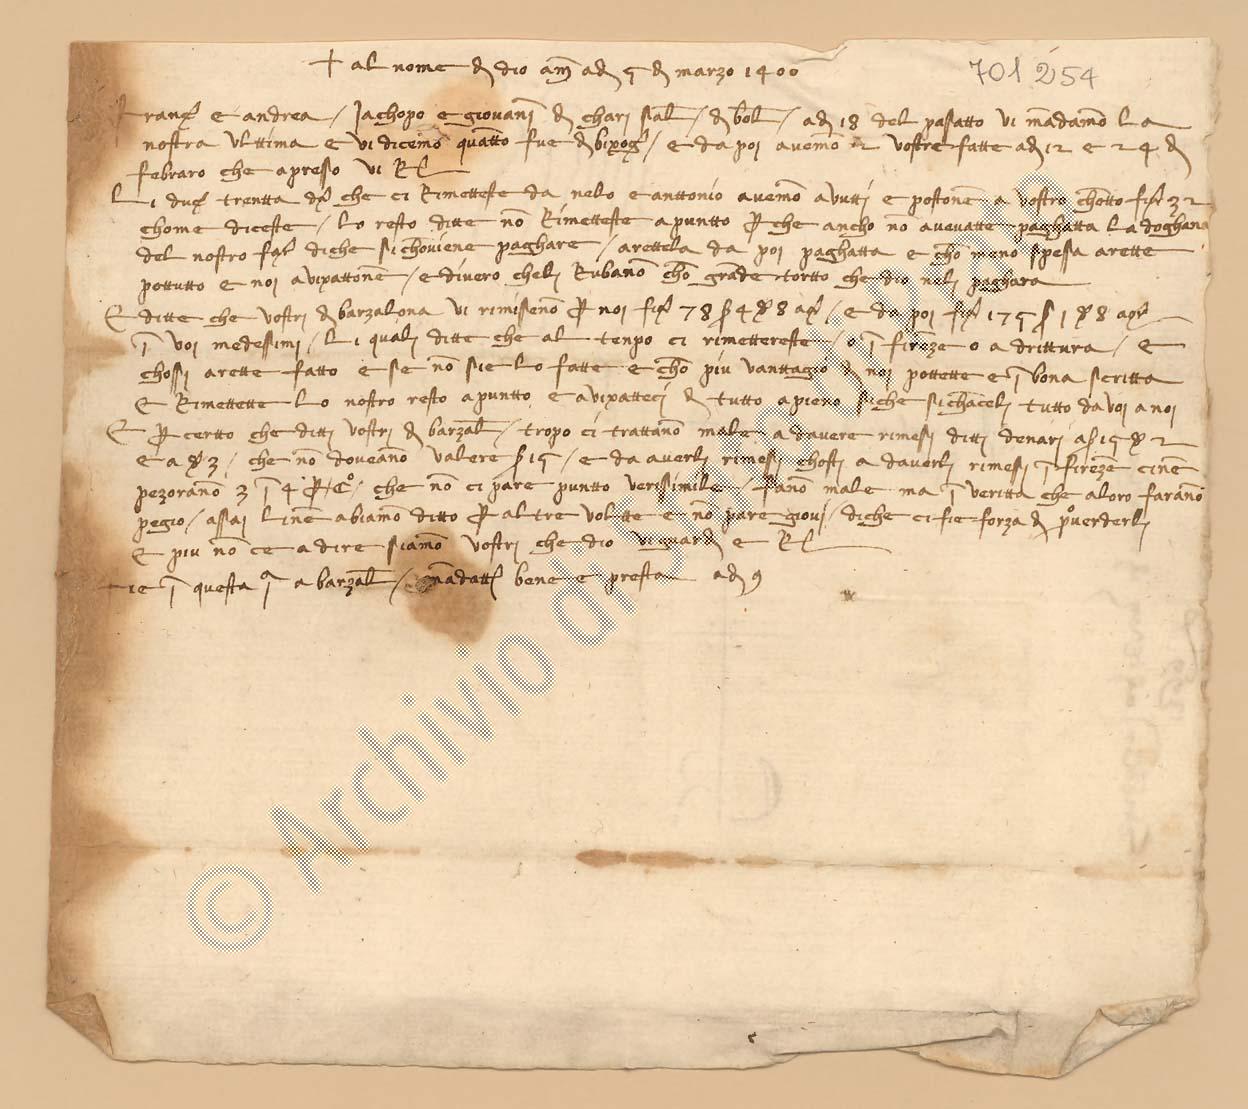 + al nome di dio am̄ adi 5 di marzo 1400
701 254
Franco e andrea / Jachopo e giovanni di chari sal / di bol / adi 18 del pasatto vi mādamō la
nostra ulttima e vi dicemō quātto fue di bixog / e da poi avemō 2 vostre fatte adi 12 e 24 di
febraro che apresso vi R
Li duc trentta che ci Rimetteste da nelo e anttonio avemō avutti e postonē a vostro chōtto fi 32
chome diceste / lo resto ditte nō Rimetteste apuntto p che ancho nō avevatte paghatta la doghana
del nostro di che si chōviene paghare / arettela da poi paghatta e chō meno spessa arette
pottutto e noi avixattonē / e di vero cheli Rubanō chō grāde tortto che dio neli paghara
E ditte che vostri di barzalona vi rimissenō p noi fi 78 s 4 d 8 / e da poi fi 175 s 1 d 8
ī voi medessimi / li quali ditte che al tenpo ci rimettereste / o ī fireze o a drittura / E
chossi arette fatto e se nō sie lo fatte e chō piu vanttagio di noi pottette e ī bona scritta
E Rimettette lo nostro resto apuntto e avixatteci di tutto apieno siche si chāceli tutto da voi a noi
E p certto che ditti vostri di barzal / tropo ci trattanō male a davere rimesi ditti denari a s 15 d 2
e a d 3 / che nō doveano valere s 15 / e da averli rimesi chosti a daverli rimesi ī firenze cinē
pezoranō 3 ī 4 p Cº / che nō ci pare puntto verissimile / fanō male ma ī veritta che aloro faranō
pegio / assai linē abiamō ditto p altre voltte e nō pare giovi / di che ci fie forza di pºverderli
E piu nō ce a dire siamō vostri che dio vi guardi e R
ī questa ī a barzal / mādatti bene e presta adi 9
© Archivio di